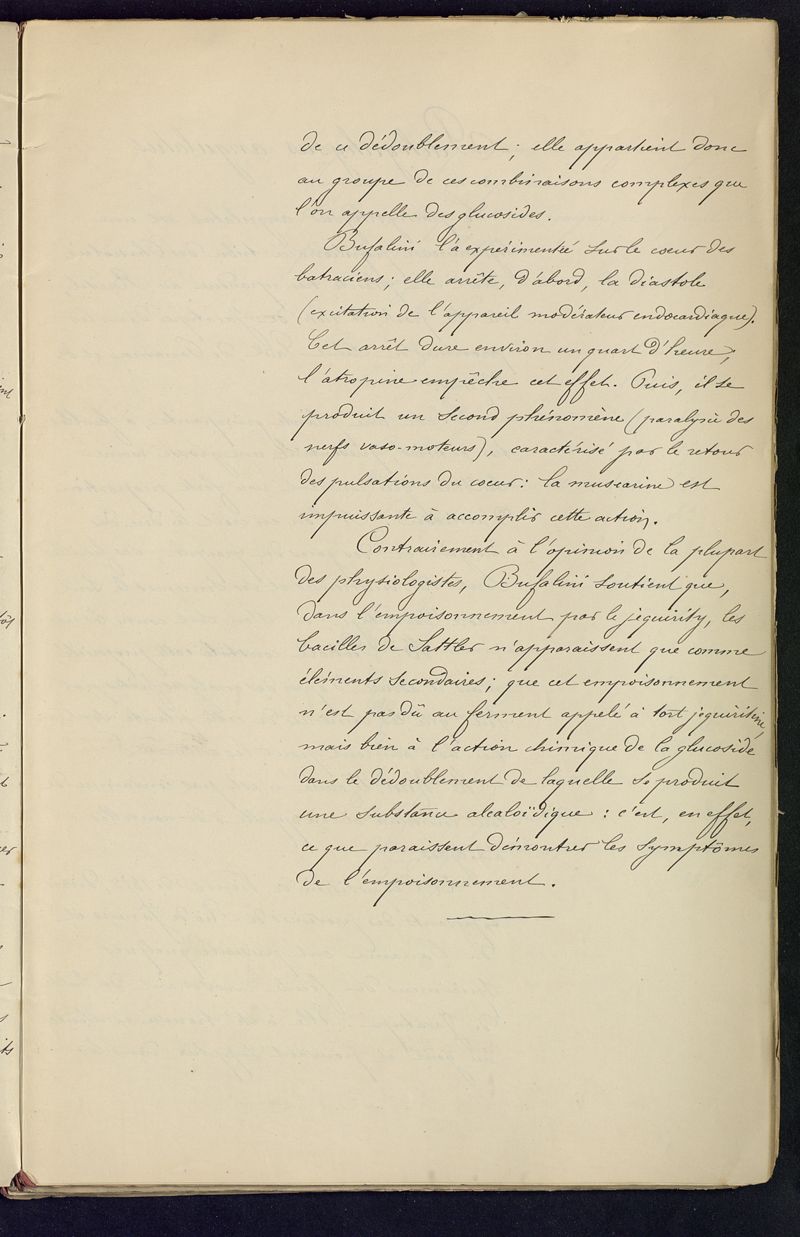 de ce dédoublement ; elle appartient donc
au groupe de ces combinaisons complexes que
l'on appelle des glucosides.
Bufalini l'a expérimentée sur le cœur des
batraciens ; elle arrête, d'abord, la diastole
(excitation de l'appareil modérateur endocardiaque).
Cet arrêt dure environ un quart d'heure ;
l'atropine empêche cet effet. Puis, il se
produit un second phénomène (paralysie des
nerfs vaso-moteurs), caractérisé par le retour
des pulsations du cœur : la muscarine est
impuissante à accomplir cette action.
Contrairement à l'opinion de la plupart
des physiologistes, Bufalini soutient que,
dans l'empoisonnement par le jequirity, les
bacilles de Sattler n'apparaissent que comme
éléments secondaires ; que cet empoisonnement
n'est pas dû au ferment appelé à tort jequiritine,
mais bien à l'action chimique de la glucoside
dans le dédoublement de laquelle se produit
une substance alcaloïdique : c'est, en effet,
ce que paraissent démontrer les symptômes
de l'empoisonnement.